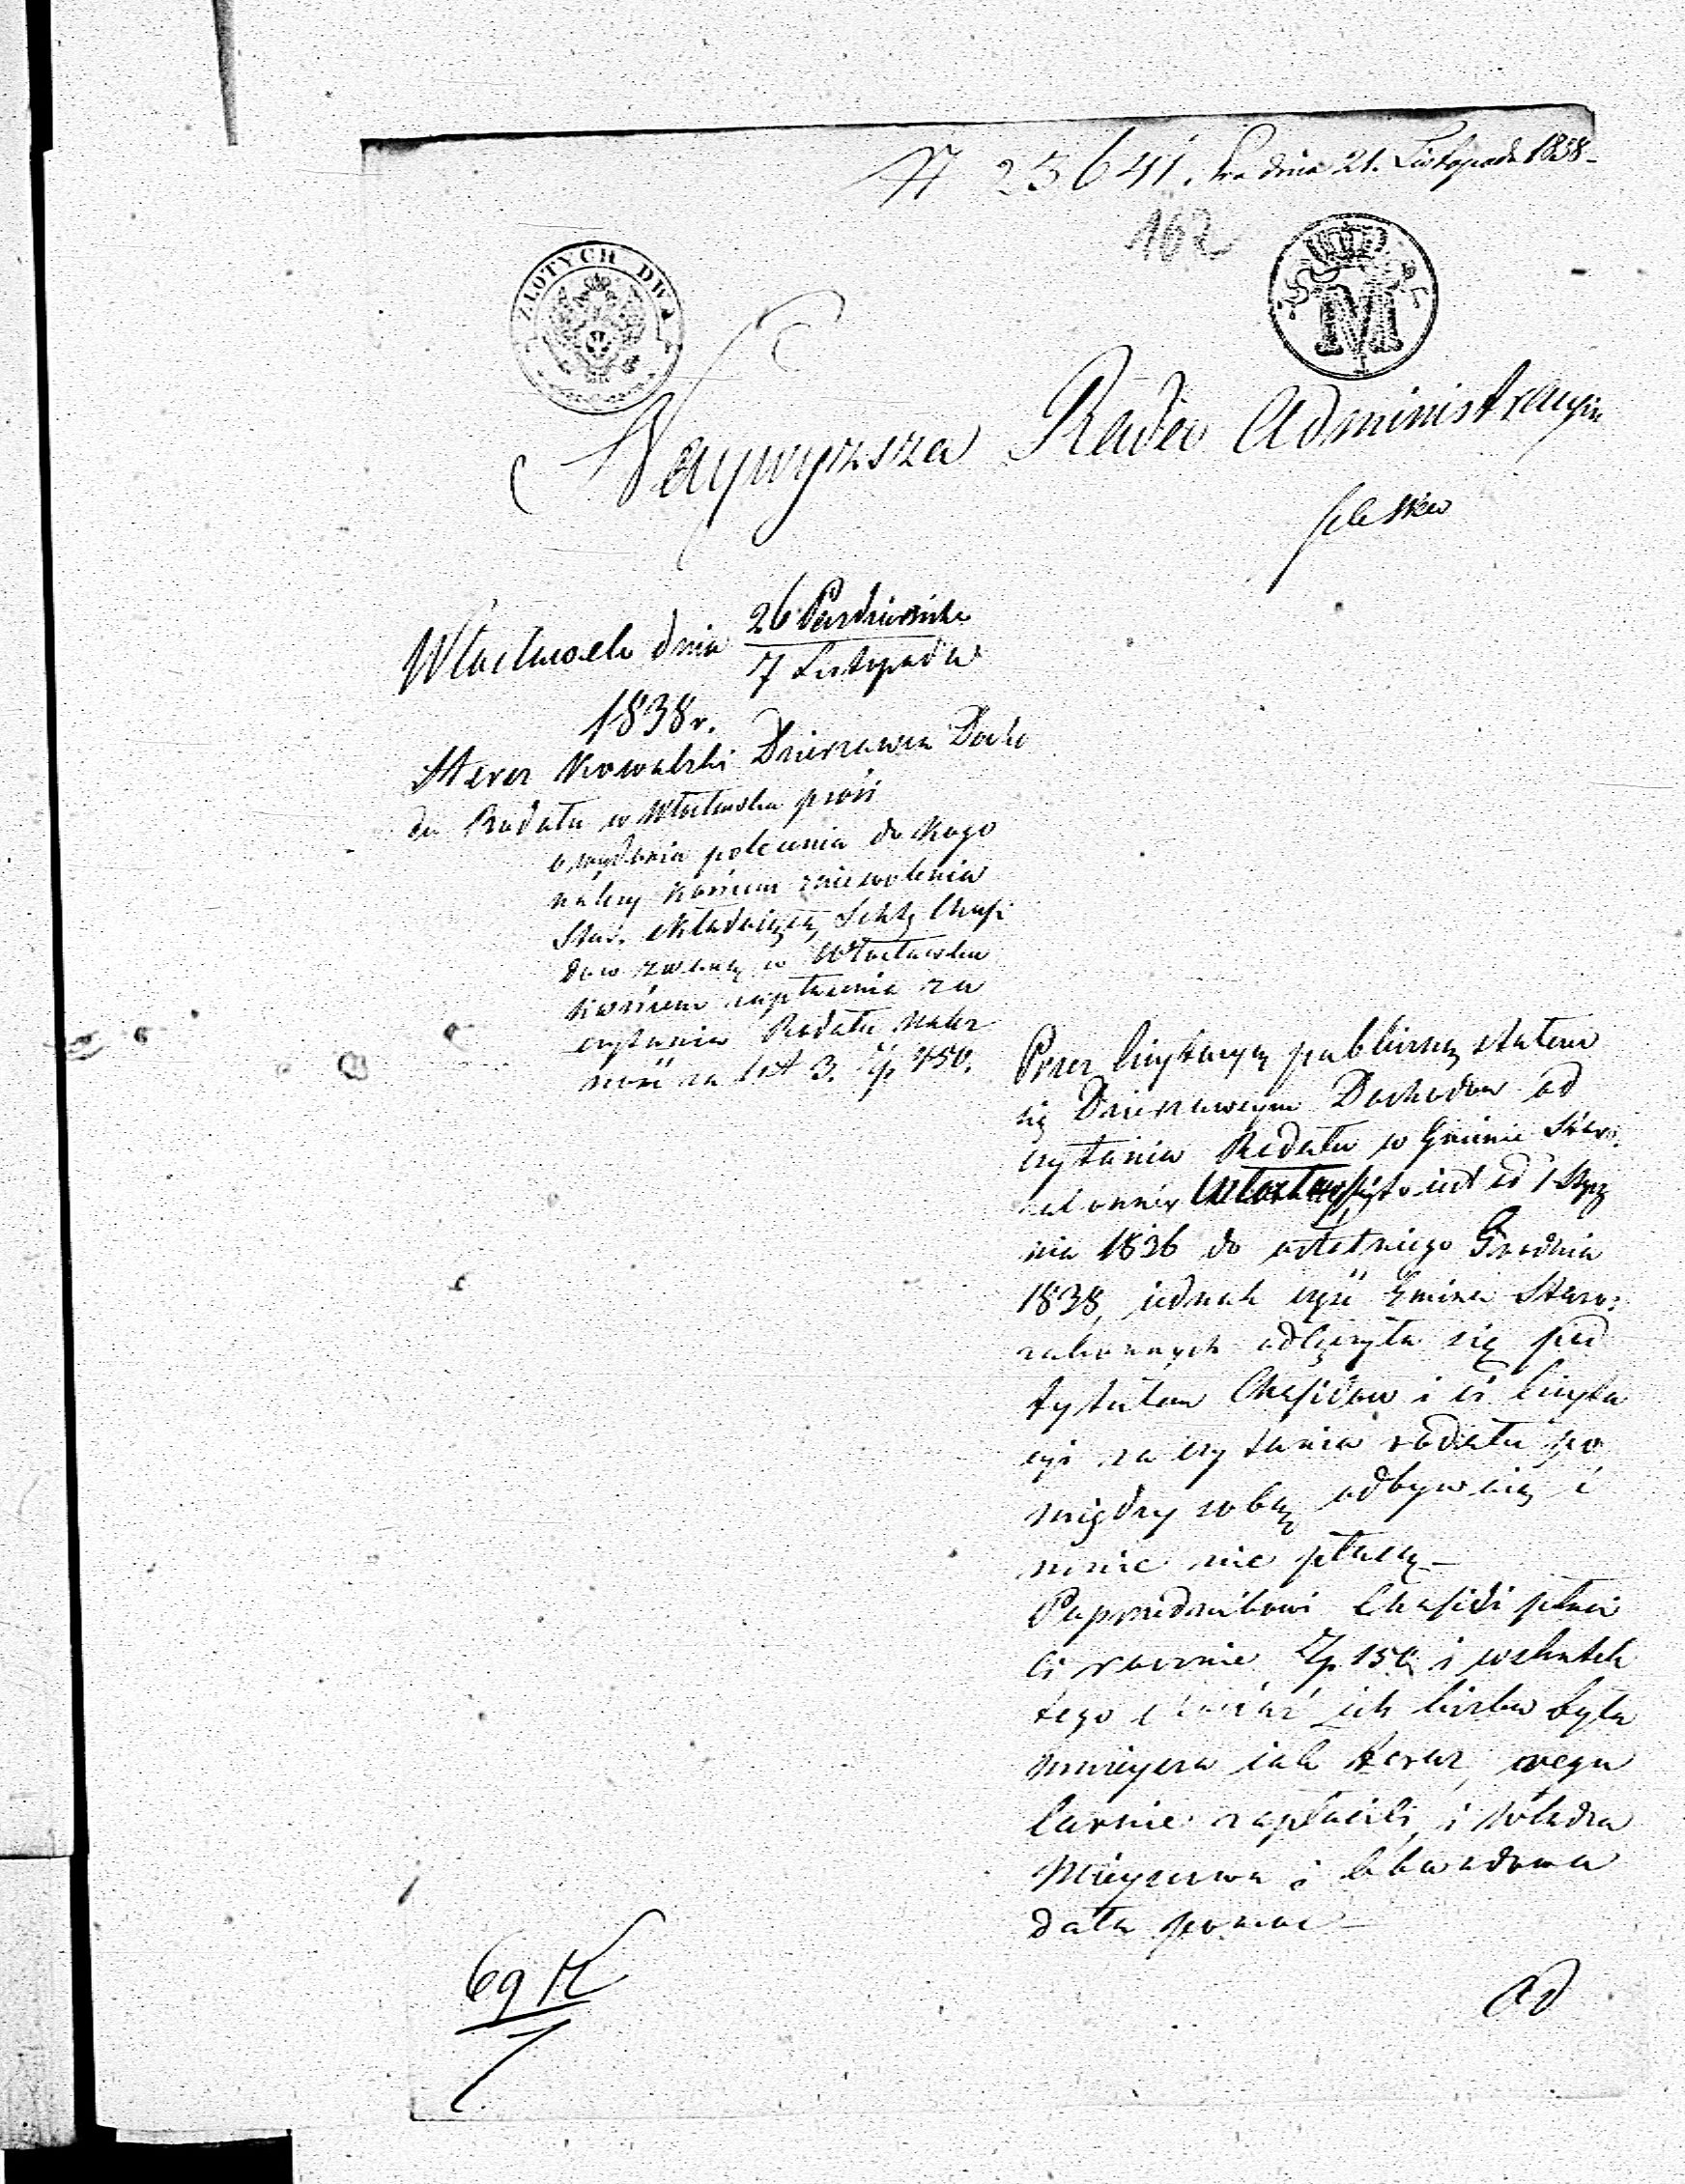 N 23641. dnia 21. Listopada 1838
162
ZŁOTYCH DWA
M
Naywyzsza Rada Administracyina
Włocławek dnia 26 Pazdziernika
7 Listopada
1838 r.
Kowalski Dzierzawca Docho
du Rodału w Włocławku prosi
o wydanie polecenia do kogo
nalezy koncem zniewolenia
Star. składaiącą Sektę Chasi
dow zwaną w Włocławku
koncem zapłacenia za
czytanie Rodału nalez
ność za lat 3. Zp 450.
Przez licytacyą publiczną stałem
się Dzierzawcym Dochodow od
czytania Rodału w Gminie Staro
zakonney to iest od 1 Stycz
nia 1836 do ostatniego Grudnia
1838, iednak część Gminu Staro:
zakonnych odłączyła się pod
tytułem Chasidow i ci licyta
cyi za czytania rodału po
między sobą odbywaią i
mnie nie płacą
Poprzednikowi Chasidi płaci
li rocznie Zp 150 i wskutek
tego chociaż ich liczba była
mnieysza iak teraz, regu
larnie zapłacili, i Władza
Mieyscowa i Obwodowa
dała pomoc
Od
69 K